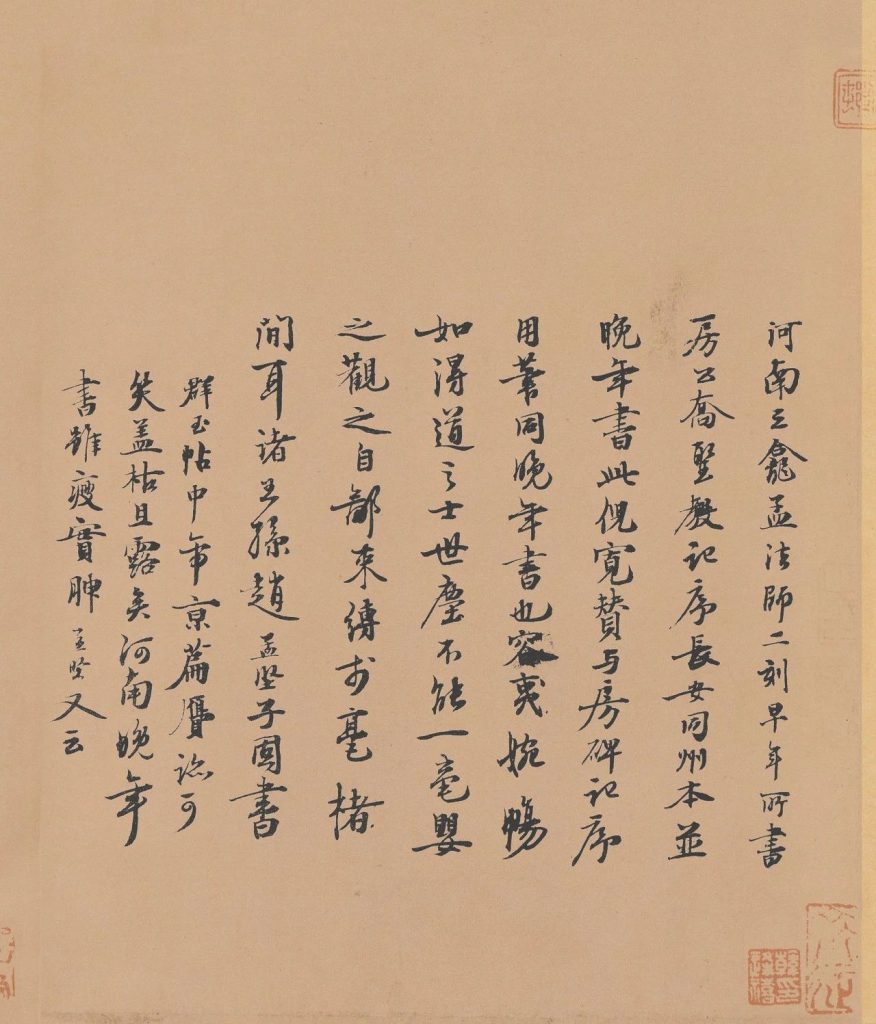 河南三龕孟法師二刻早年所書
房公喬聖教記序長安同州本並
晚年書此倪寬贊与房碑記序
用筆同晚年書也容夷婉暢
如得道之士世塵不能一毫嬰
之觀之自鄙束縛於毫楮
間耳諸王孫趙孟堅子固書
群玉帖中帝京篇贋跡可
笑盖枯且露矣河南晚年
書雖瘦實腴孟堅又云